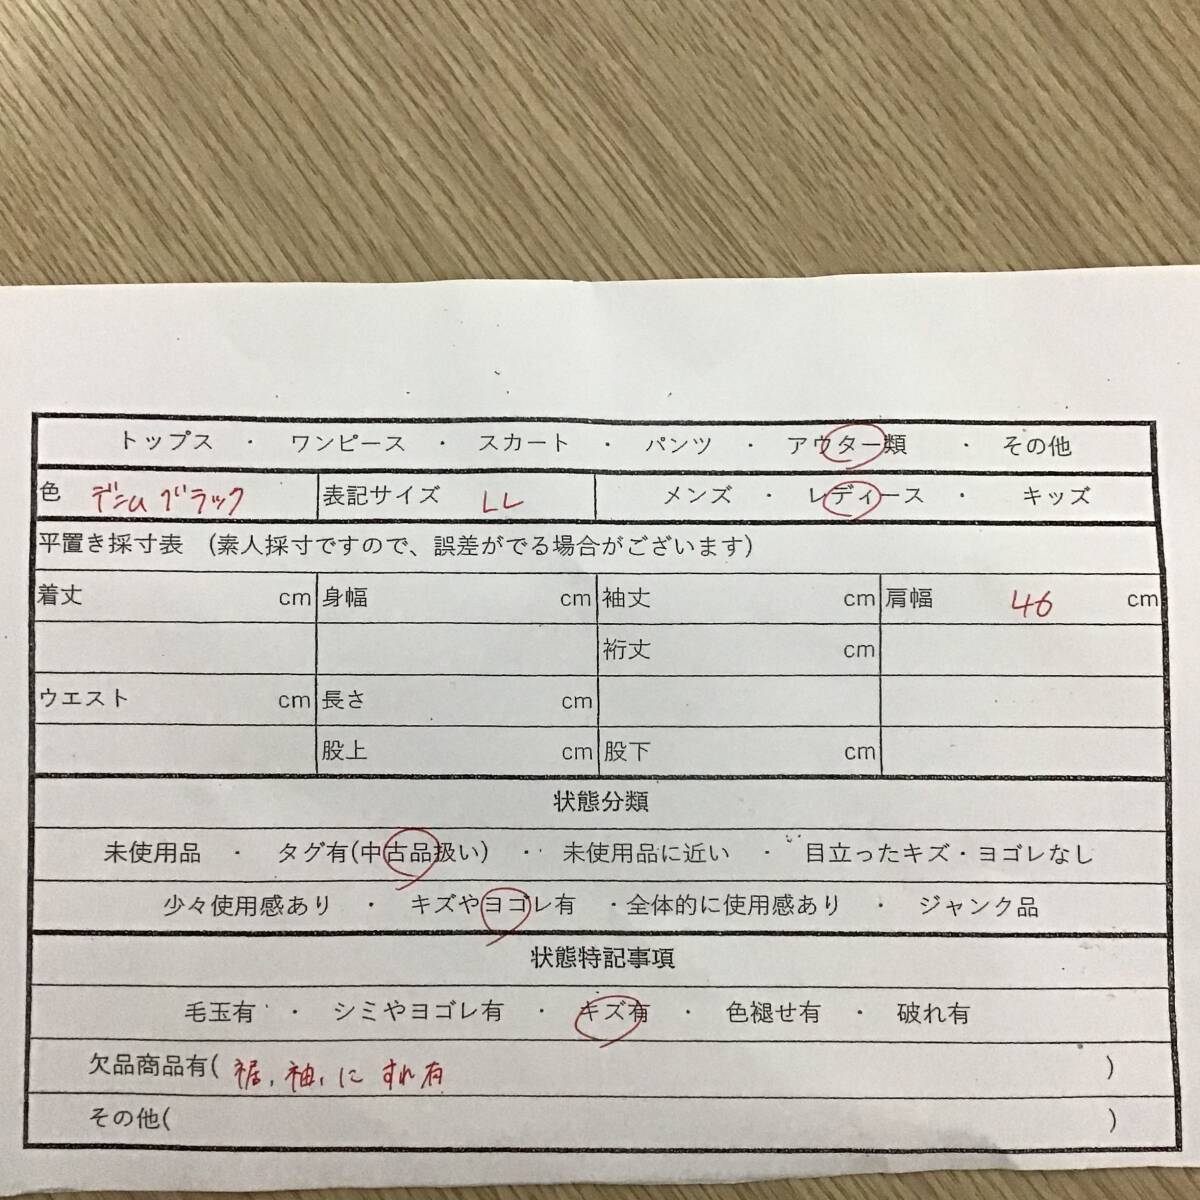 トップス ・ ワンピース ・ スカート ・ パンツ ・ アウター類 ・ その他
色 デニム ブラック 表記サイズ LL メンズ ・ レディース ・ キッズ
平置き採寸表 (素人採寸ですので、誤差がでる場合がございます)
着丈 cm 身幅 cm 袖丈 cm 肩幅 46 cm
裄丈 cm
ウエスト cm 長さ cm
股上 cm 股下 cm
状態分類
未使用品 ・ タグ有(中古品扱い) ・ 未使用品に近い ・ 目立ったキズ・ヨゴレなし
少々使用感あり ・ キズやヨゴレ有 ・全体的に使用感あり ・ ジャンク品
状態特記事項
毛玉有 ・ シミやヨゴレ有 ・ キズ有 ・ 色褪せ有 ・ 破れ有
欠品商品有( 裾、袖、に すれ有 )
その他( )